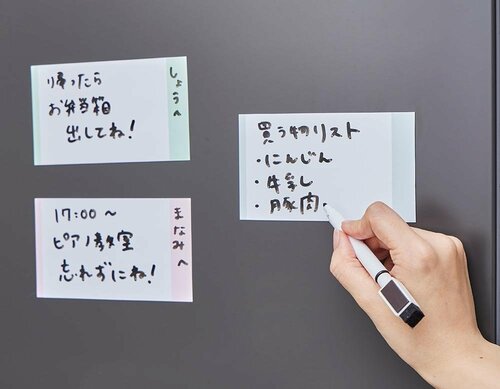 帰ったら
お弁当箱
出してね!
しょうへ
17:00〜
ピアノ教室
忘れずにね!
まなみへ
買う物リスト
・にんじん
・牛乳
・豚肉